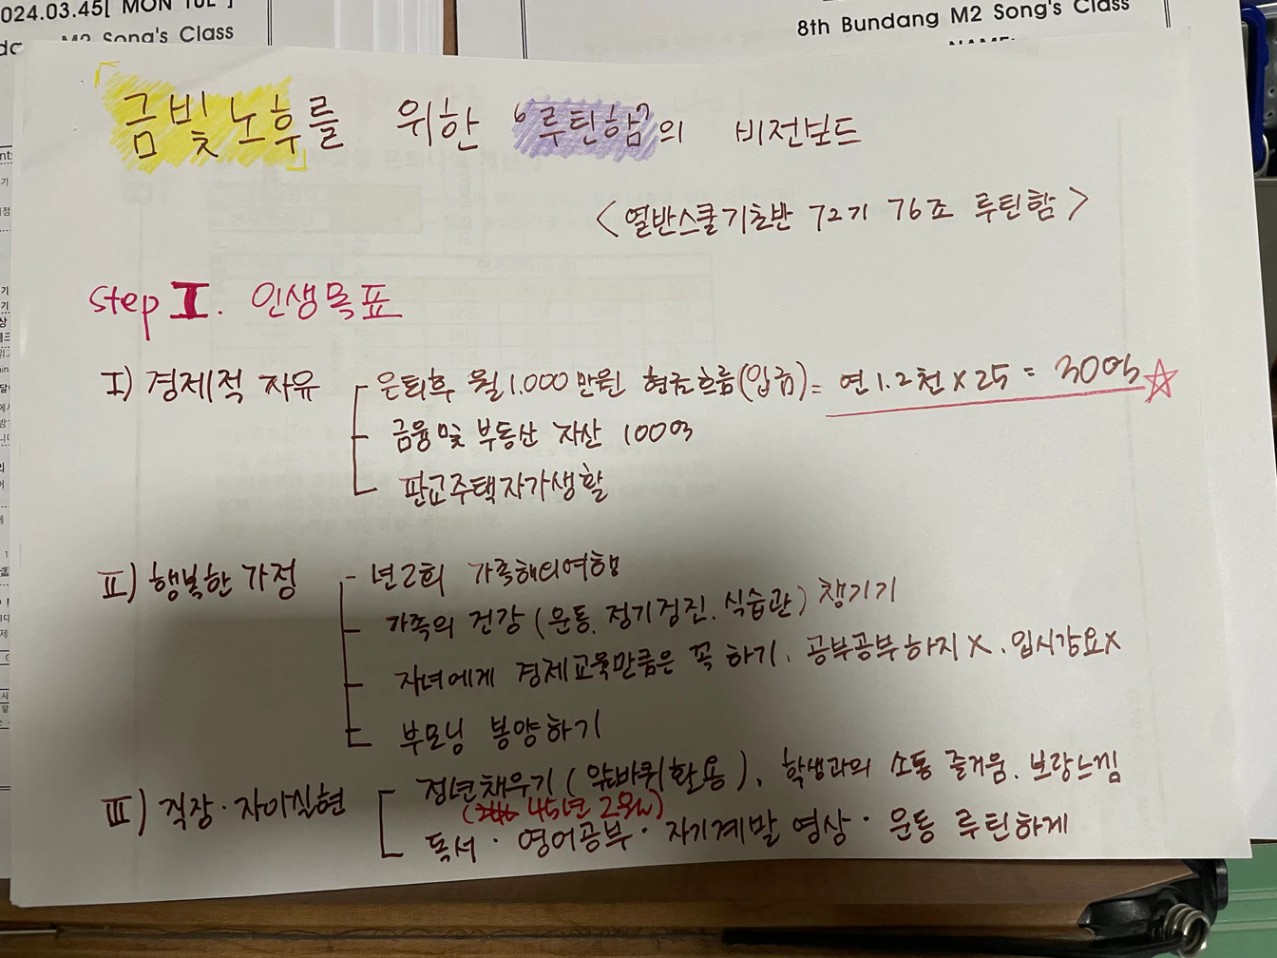 024.03.45[ MON TUE ]
M2 Song's Class
8th Bundang M2 Song's Class
NAME:
「금빛노후를 위한 "루틴함"의 비전보드
<열반스쿨기초반 72기 76조 루틴함>
Step I. 인생목표
I) 경제적 자유
은퇴후 월1,000만원 현금흐름(입금)= 연1.2천×25 = 30억☆
금융및 부동산 자산 100억
판교주택자가생활
II) 행복한 가정
- 년2회 가족해외여행
가족의 건강 (운동.정기검진.식습관) 챙기기
자녀에게 경제교육만큼은 꼭 하기. 공부공부하지X. 입시강요X
부모님 봉양하기
III) 직장·자아실현
정년채우기 (앞바퀴활용), 학생과의 소통 즐거움. 보람느낌
(45년 2월)
독서·영어공부·자기계발 영상·운동 루틴하게